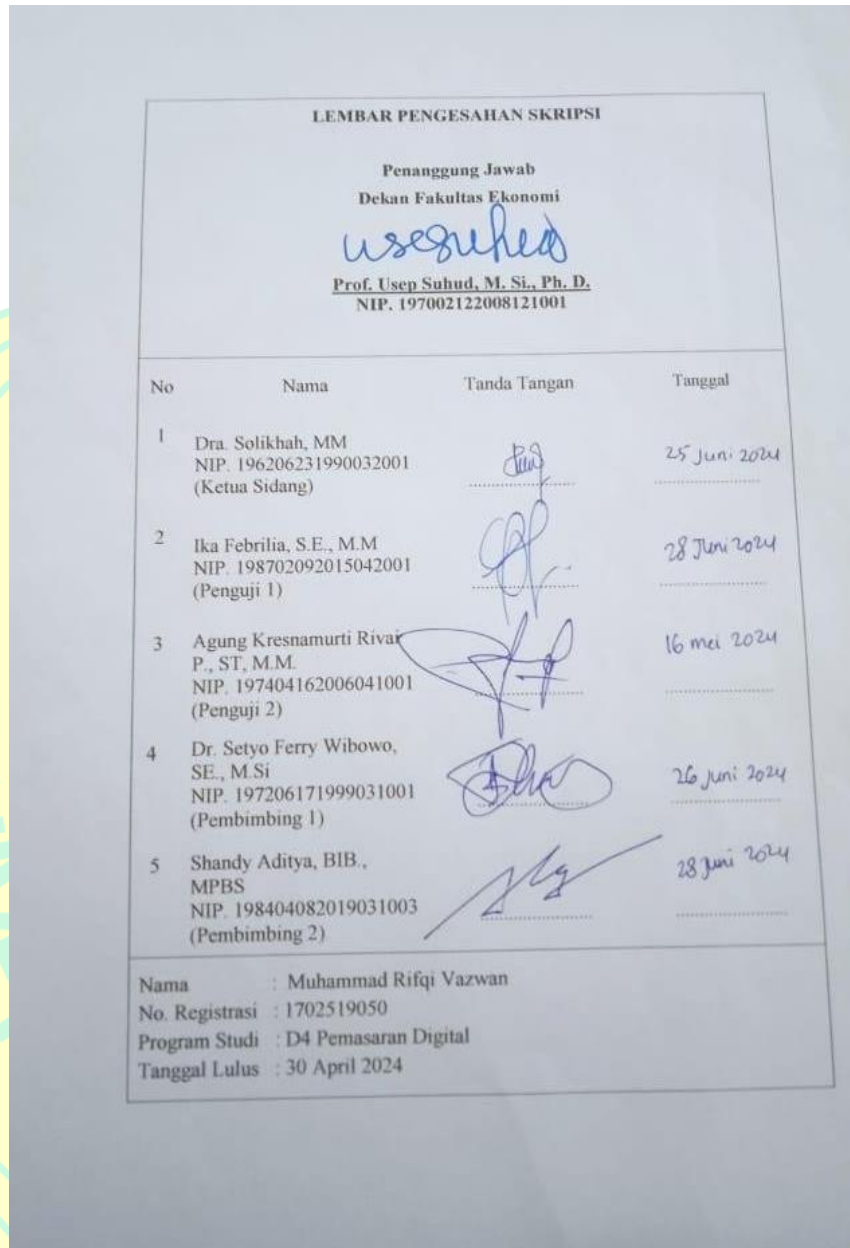 LEMBAR PENGESAHAN SKRIPSI
Penanggung Jawab
Dekan Fakultas Ekonomi
usepsuhud
Prof. Usep Suhud, M. Si., Ph. D.
NIP. 197002122008121001
No Nama Tanda Tangan Tanggal
1 Dra. Solikhah, MM 25 Juni 2024
NIP. 196206231990032001
(Ketua Sidang)
2 Ika Febrilia, S.E., M.M 28 Juni 2024
NIP. 198702092015042001
(Penguji 1)
3 Agung Kresnamurti Rivai 16 mei 2024
P., ST, M.M.
NIP. 197404162006041001
(Penguji 2)
4 Dr. Setyo Ferry Wibowo,
SE., M.Si 26 Juni 2024
NIP. 197206171999031001
(Pembimbing 1)
5 Shandy Aditya, BIB., 28 Juni 2024
MPBS
NIP. 198404082019031003
(Pembimbing 2)
Nama : Muhammad Rifqi Vazwan
No. Registrasi : 1702519050
Program Studi : D4 Pemasaran Digital
Tanggal Lulus : 30 April 2024